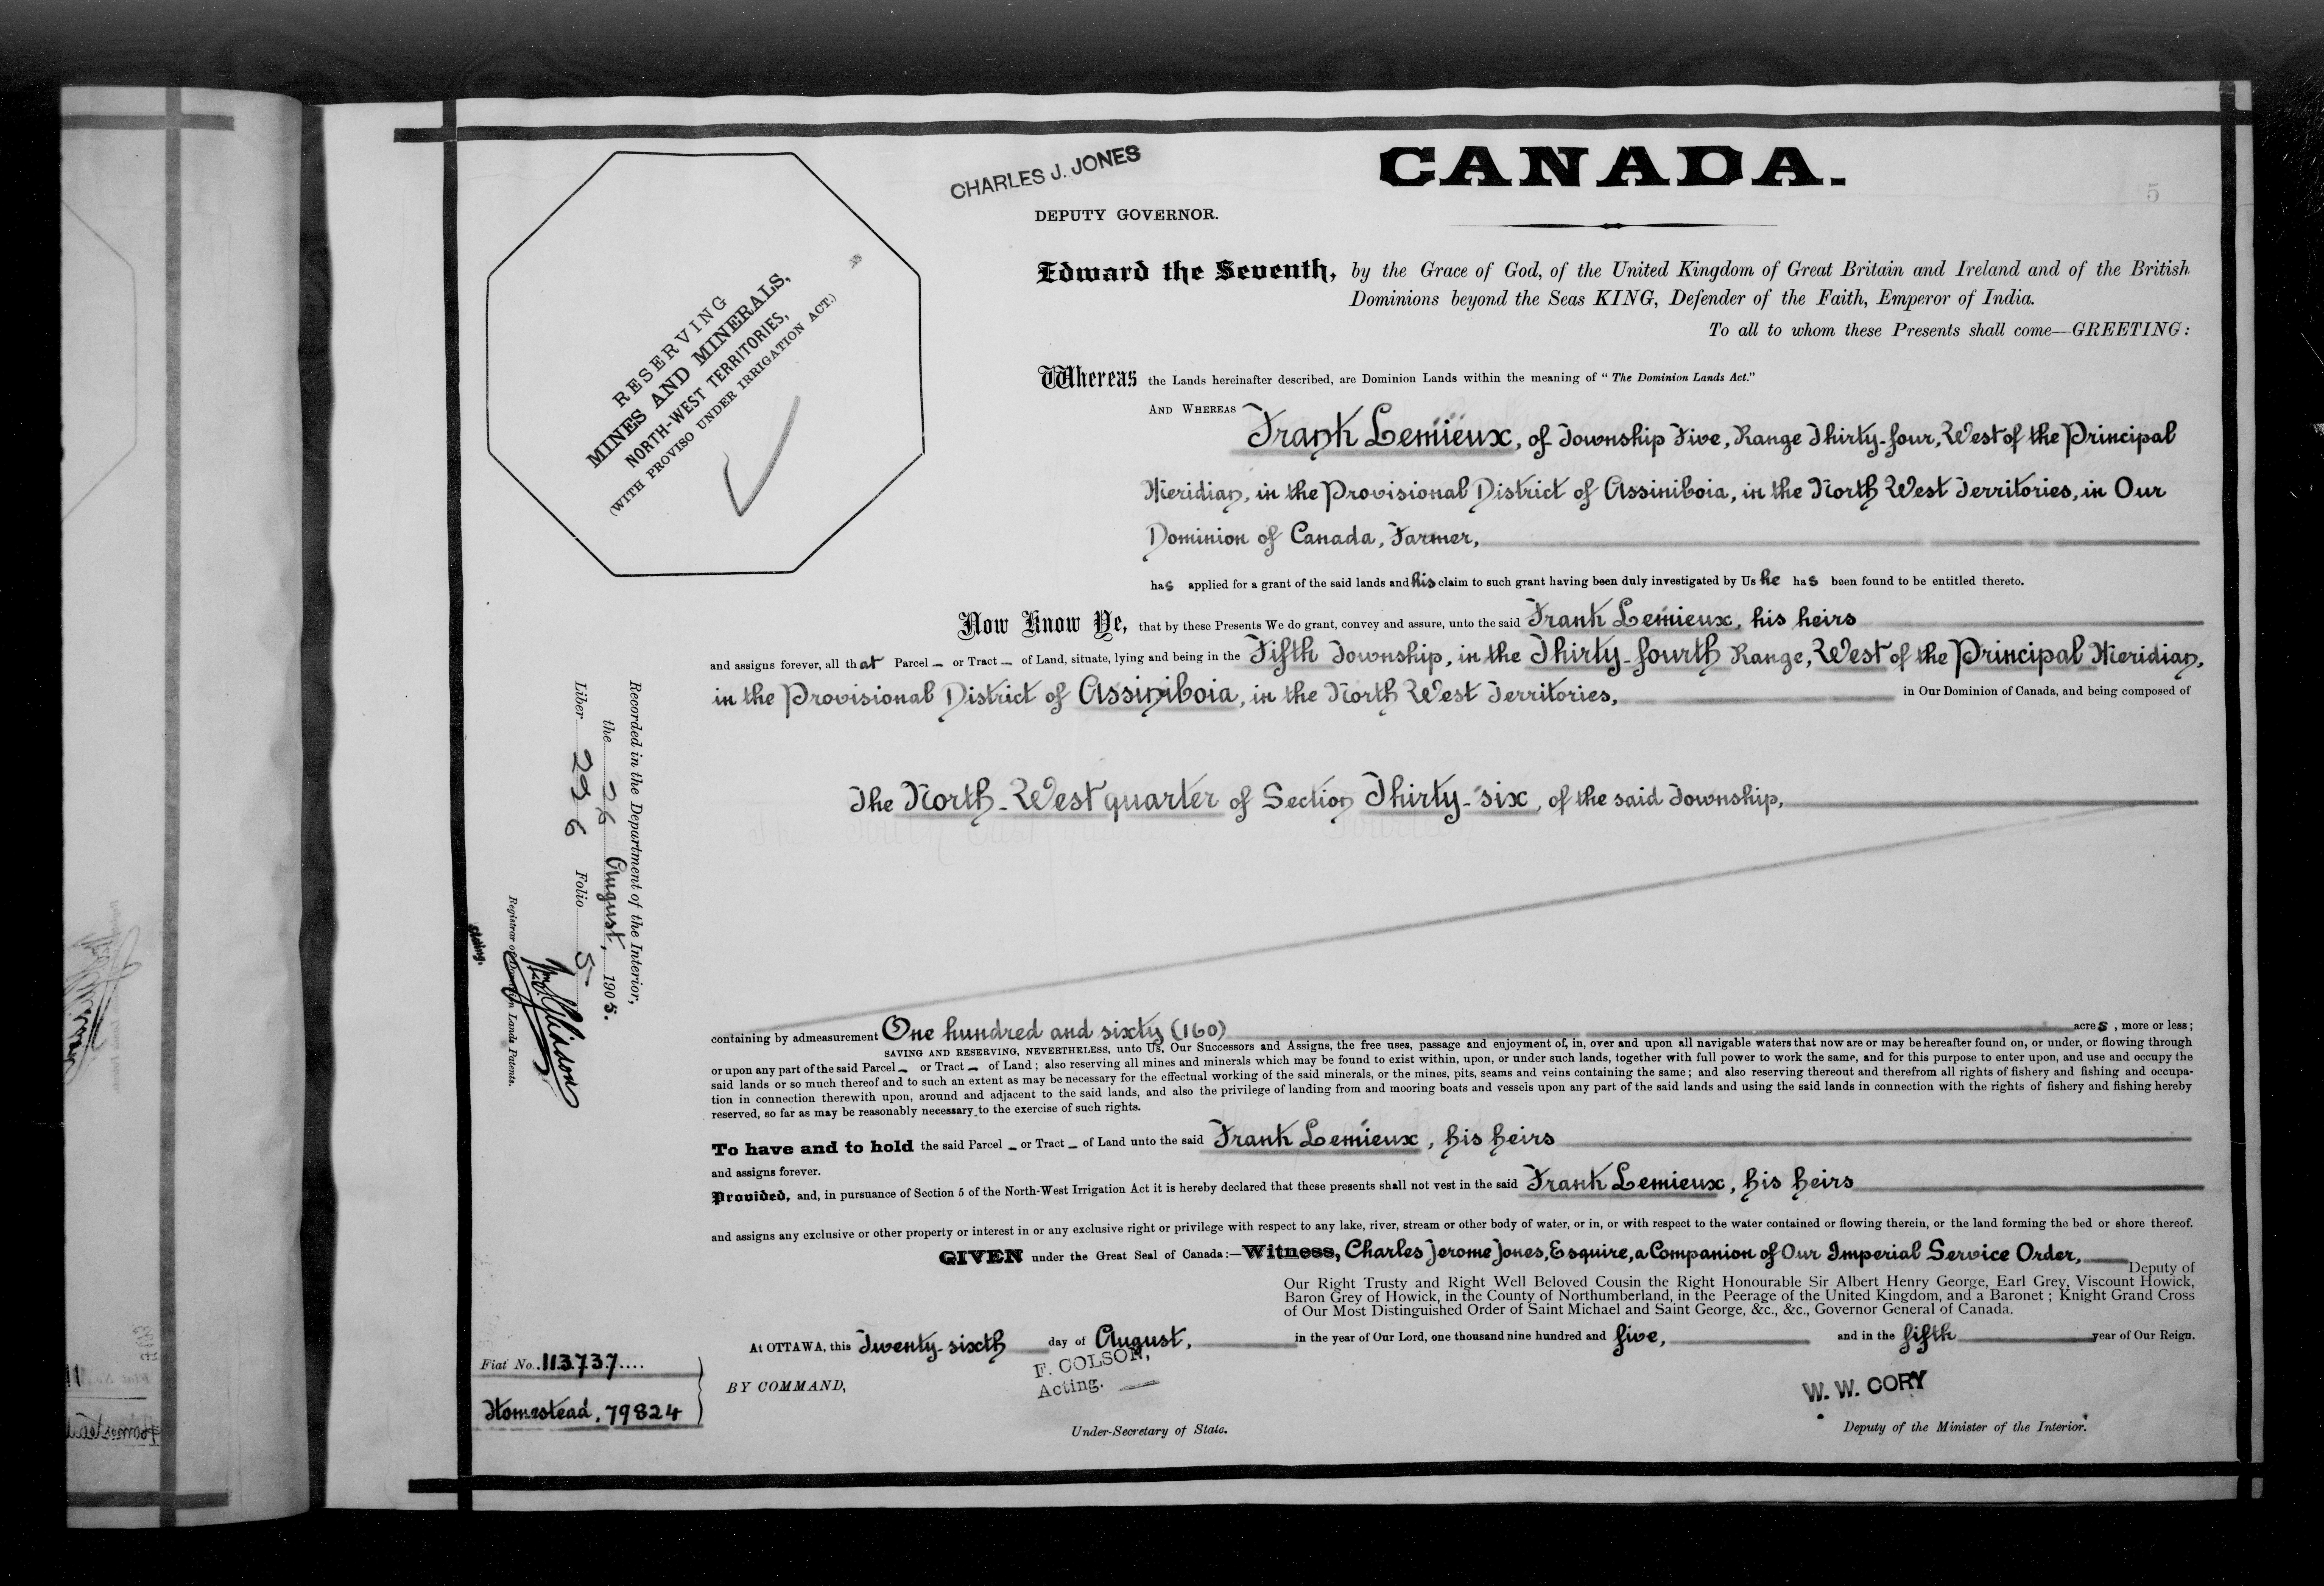 CHARLES J. JONES
CANADA.
5
DEPUTY GOVERNOR.
RESERVING
MINES AND MINERALS,
NORTH-WEST TERRITORIES,
(WITH PROVISO UNDER IRRIGATION ACT.)
Edward the Seventh, by the Grace of God, of the United Kingdom of Great Britain and Ireland and of the British
Dominions beyond the Seas KING, Defender of the Faith, Emperor of India.
To all to whom these Presents shall come—GREETING:
Whereas the Lands hereinafter described, are Dominion Lands within the meaning of "The Dominion Lands Act."
AND WHEREAS Frank Lemieux, of Township Five, Range Thirty-four, West of the Principal
Meridian, in the Provisional District of Assiniboia, in the North West Territories, in Our
Dominion of Canada, Farmer,
has applied for a grant of the said lands and his claim to such grant having been duly investigated by Us he has been found to be entitled thereto.
Now Know Ye, that by these Presents We do grant, convey and assure, unto the said Frank Lemieux, his heirs
and assigns forever, all that Parcel – or Tract – of Land, situate, lying and being in the Fifth Township, in the Thirty-fourth Range, West of the Principal Meridian,
in the Provisional District of Assiniboia, in the North West Territories, in Our Dominion of Canada, and being composed of
The North-West quarter of Section Thirty-six, of the said Township,
containing by admeasurement One hundred and sixty (160) acres, more or less;
SAVING AND RESERVING, NEVERTHELESS, unto Us, Our Successors and Assigns, the free uses, passage and enjoyment of, in, over and upon all navigable waters that now are or may be hereafter found on, or under, or flowing through
or upon any part of the said Parcel – or Tract – of Land; also reserving all mines and minerals which may be found to exist within, upon, or under such lands, together with full power to work the same, and for this purpose to enter upon, and use and occupy the
said lands or so much thereof and to such an extent as may be necessary for the effectual working of the said minerals, or the mines, pits, seams and veins containing the same; and also reserving thereout and therefrom all rights of fishery and fishing and occupa-
tion in connection therewith upon, around and adjacent to the said lands, and also the privilege of landing from and mooring boats and vessels upon any part of the said lands and using the said lands in connection with the rights of fishery and fishing hereby
reserved, so far as may be reasonably necessary to the exercise of such rights.
To have and to hold the said Parcel – or Tract – of Land unto the said Frank Lemieux, his heirs
and assigns forever.
Provided, and, in pursuance of Section 5 of the North-West Irrigation Act it is hereby declared that these presents shall not vest in the said Frank Lemieux, his heirs
and assigns any exclusive or other property or interest in or any exclusive right or privilege with respect to any lake, river, stream or other body of water, or in, or with respect to the water contained or flowing therein, or the land forming the bed or shore thereof.
GIVEN under the Great Seal of Canada:—Witness, Charles Jerome Jones, Esquire, a Companion of Our Imperial Service Order, Deputy of
Our Right Trusty and Right Well Beloved Cousin the Right Honourable Sir Albert Henry George, Earl Grey, Viscount Howick,
Baron Grey of Howick, in the County of Northumberland, in the Peerage of the United Kingdom, and a Baronet; Knight Grand Cross
of Our Most Distinguished Order of Saint Michael and Saint George, &c., &c., Governor General of Canada.
At OTTAWA, this Twenty-sixth day of August, in the year of Our Lord, one thousand nine hundred and five, and in the fifth year of Our Reign.
BY COMMAND,
F. COLSON,
Acting.
Under-Secretary of State.
W. W. CORY
Deputy of the Minister of the Interior.
Fiat No. 113737
Homestead, 79824
Recorded in the Department of the Interior,
the 26 August, 1905.
Liber 296 Folio 5
Registrar of Dominion Lands Patents.